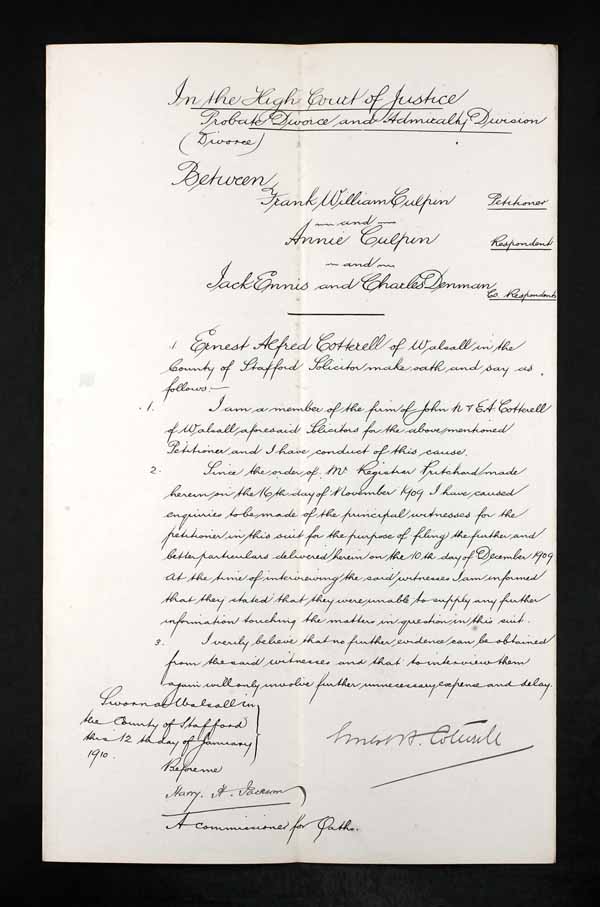 In the High Court of Justice
Probate Divorce and Admiralty Division
(Divorce)
Between
Frank William Culpin Petitioner
and
Annie Culpin Respondent
and
Jack Ennis and Charles Denman Co. Respondents
I Ernest Alfred Cotterell of Walsall in the
County of Stafford Solicitor make oath and say as
follows:-
1. I am a member of the firm of John N & E.A. Cotterell
of Walsall aforesaid Solicitors for the above mentioned
Petitioner and I have conduct of this cause.
2. Since the order of Mr Registrar Pritchard made
herein on the 16th day of November 1909 I have caused
enquiries to be made of the principal witnesses for the
petitioner in this suit for the purpose of filing the further and
better particulars delivered herein on the 10th day of December 1909
At the time of interviewing the said witnesses I am informed
that they stated that they were unable to supply any further
information touching the matters in question in this suit.
3. I verily believe that no further evidence can be obtained
from the said witnesses and that to interview them
again will only involve further unnecessary expense and delay.
Sworn at Walsall in
the County of Stafford
this 12th day of January
1910.
Before me
Ernest A. Cotterell
Harry A. Jackson
A commissioner for Oaths.